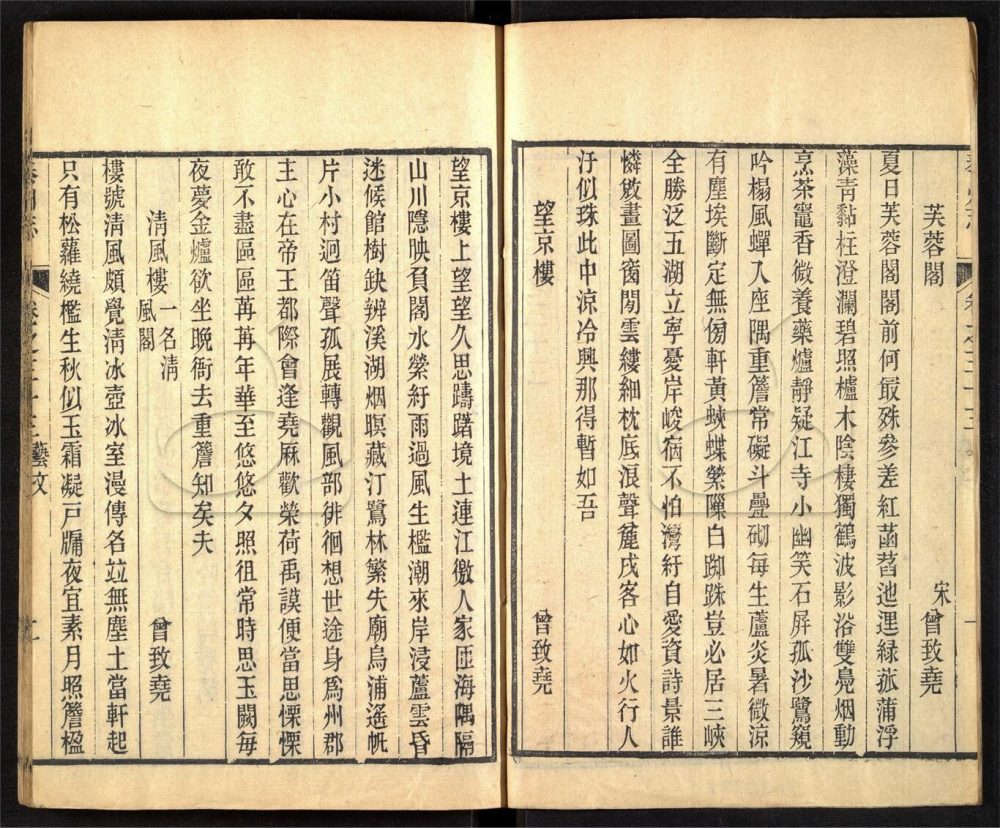 芙蓉閣
宋曾致堯
夏日芙蓉閣閣前何最殊參差紅菡萏迤邐緑菰蒲浮
藻青黏柱澄瀾碧照櫨木陰棲獨鶴波影浴雙鳧烟動
烹茶竈香微養藥爐靜疑江寺小幽笑石屏孤沙鷺窺
吟榻風蟬入座隅重簷常礙斗疊砌每生蘆炎暑微涼
有塵埃斷定無傍軒黃蛺蝶縈隟白踟蛛豈必居三峽
全勝泛五湖立寧憂岸峻宿不怕灣紆自愛資詩景誰
憐敚畫圖窗閒雲縷細枕底浪聲麄戍客心如火行人
汙似珠此中涼冷興那得暫如吾
望京樓
曾致堯
望京樓上望望久思躊躇境土連江徼人家匝海隅隔
山川隱映負閣水縈紆雨過風生檻潮來岸浸蘆雲昏
迷候館樹缺辨溪湖烟暝藏汀鷺林繁失廟烏浦遙帆
片小村迥笛聲孤展轉觀風部徘徊想世途身爲州郡
主心在帝王都際會逢堯厤歡榮荷禹謨便當思慄慄
敢不盡區區苒苒年華至悠悠夕照徂常時思玉闕每
夜夢金爐欲坐晚衙去重簷知矣夫
清風樓一名清風閣
曾致堯
樓號清風頗覺清冰壺冰室漫傳名竝無塵土當軒起
只有松蘿繞檻生秋似玉霜凝戸牖夜宜素月照簷楹
藝文